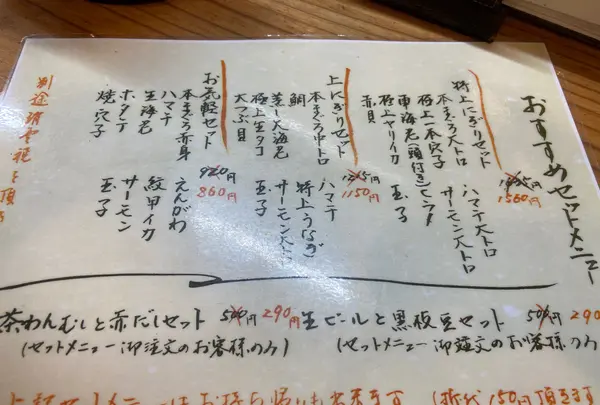 おすすめセットメニュー
特上にぎりセット 1560円
本まぐろ大トロ ハマチ大トロ
極上一本穴子 サーモン大トロ
車海老(頭付き) ヒラメ
極上アオリイカ 玉子
赤貝
上にぎりセット 1150円
本まぐろ中トロ ハマチ
鯛 特上うなぎ
蒸し大海老 サーモン大トロ
極上生タコ 玉子
大つぶ貝
お気軽セット 920円 860円
本まぐろ赤身 えんがわ
ハマチ 紋甲イカ
生海老 サーモン
ホタテ 玉子
焼穴子
別途消費税を頂
茶わんむしと赤だしセット 500円 290円
(セットメニュー御注文のお客様のみ)
生ビールと黒枝豆セット 500円 290
(セットメニュー御注文のお客様のみ)
上記セットメニューはお持ち帰りも出来ます (折代150円頂きます